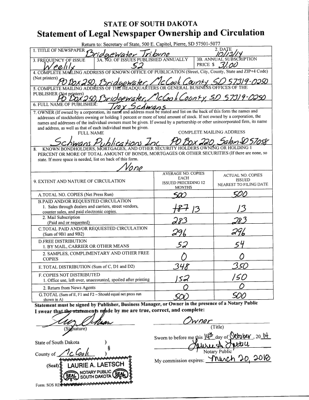 STATE OF SOUTH DAKOTA
Statement of Legal Newspaper Ownership and Circulation
Return to: Secretary of State, 500 E. Capitol, Pierre, SD 57501-5077
1. TITLE OF NEWSPAPER Bridgewater Tribune 2. DATE 10/13/14
3. FREQUENCY OF ISSUE Weekly 3A. NO. OF ISSUES PUBLISHED ANNUALLY 52 3B. ANNUAL SUBSCRIPTION PRICE $ 31.00
4. COMPLETE MAILING ADDRESS OF KNOWN OFFICE OF PUBLICATION (Street, City, County, State and ZIP+4 Code)
(Not printers) PO Box 250, Bridgewater, McCook County, SD 57319-0250
5. COMPLETE MAILING ADDRESS OF THE HEADQUARTERS OR GENERAL BUSINESS OFFICES OF THE
PUBLISHER (Not printer) PO Box 250, Bridgewater, McCook County, SD 57319-0250
6. FULL NAME OF PUBLISHER Troy Schwans
7. OWNER (If owned by a corporation, its name and address must be stated and list on the back of this form the names and
addresses of stockholders owning or holding 1 percent or more of total amount of stock. If not owned by a corporation, the
names and addresses of the individual owners must be given. If owned by a partnership or other unincorporated firm, its name
and address, as well as that of each individual must be given.
FULL NAME COMPLETE MAILING ADDRESS
Schwans Publications Inc PO Box 220, Salem SD 57058
8. KNOWN BONDHOLDERS, MORTGAGES, AND OTHER SECURITY HOLDERS OWNING OR HOLDING 1
PERCENT OR MORE OF TOTAL AMOUNT OF BONDS, MORTGAGES OR OTHER SECURITIES (If there are none, so
state. If more space is needed, list on back of this form.
None
9. EXTENT AND NATURE OF CIRCULATION AVERAGE NO. COPIES EACH ISSUED PRECEDING 12 MONTHS ACTUAL NO. COPIES ISSUED NEAREST TO FILING DATE
A. TOTAL NO. COPIES (Net Press Run) 500 500
B. PAID AND/OR REQUESTED CIRCULATION
1. Sales through dealers and carriers, street vendors, counter sales, and paid electronic copies. 13 13
2. Mail Subscription (Paid and or requested) 283 283
C. TOTAL PAID AND/OR REQUESTED CIRCULATION (Sum of 9B1 and 9B2) 296 296
D. FREE DISTRIBUTION
1. BY MAIL, CARRIER OR OTHER MEANS 52 54
2. SAMPLES, COMPLIMENTARY AND OTHER FREE COPIES 0 0
E. TOTAL DISTRIBUTION (Sum of C, D1 and D2) 348 350
F. COPIES NOT DISTRIBUTED
1. Office use, left over, unaccounted, spoiled after printing 152 150
2. Return from News Agents 0 0
G. TOTAL (Sum of E, F1 and F2 – Should equal net press run shown in A) 500 500
Statement must be signed by Publisher, Business Manager, or Owner in the presence of a Notary Public
I swear that the statements made by me are true, correct, and complete:
Owner
(Signature) (Title)
State of South Dakota )
County of McCook )
Sworn to before me this 14th day of October, 2014
Notary Public
My commission expires: March 20, 2018
(Seal)
LAURIE A. LAETSCH
NOTARY PUBLIC
SOUTH DAKOTA
SEAL
SEAL